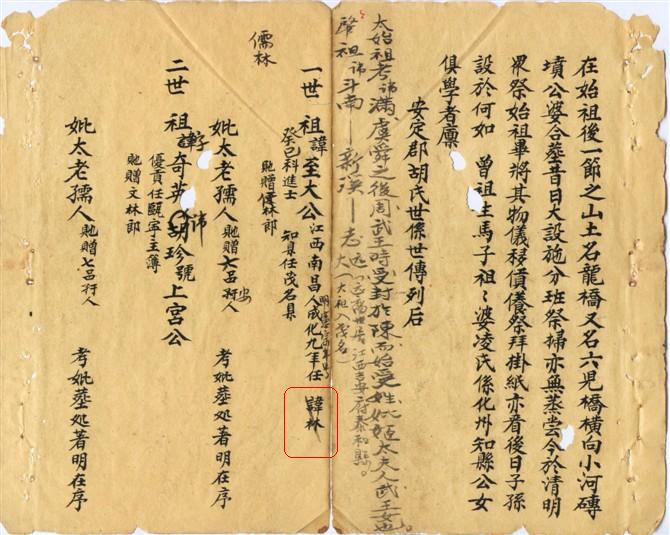 在始祖後一節之山土名龍橋又名六見橋橫向小河磚
墳公婆合墓昔日大設施分班祭掃亦無蒸嘗今於清明
眾祭始祖畢將其物儀移償儀祭拜掛紙亦看後日子孫
設於何如 曾祖主馬子祖〻婆凌氏係化州知縣公女
俱學者廩
安定郡胡氏世係世傳列后
太始祖考諱滿虞舜之後周武王時受封於陳而始受姓妣姬太夫人武王女也。
肇祖諱斗南—新溪—志远 江西吉安府泰和縣。
大(大祖入茂名)
儒林
一世祖諱至大公江西南昌人成化九年任 諱林
癸巳科進士 知縣任茂名縣
貤贈儒林郎
妣太老孺人貤贈七品安人 考妣墓処著明在序
二世祖諱字奇英諱胡珍號上宮公
優貢任甌寧主簿
貤贈文林郎
妣太老孺人貤贈七品孺人 考妣墓処著明在序